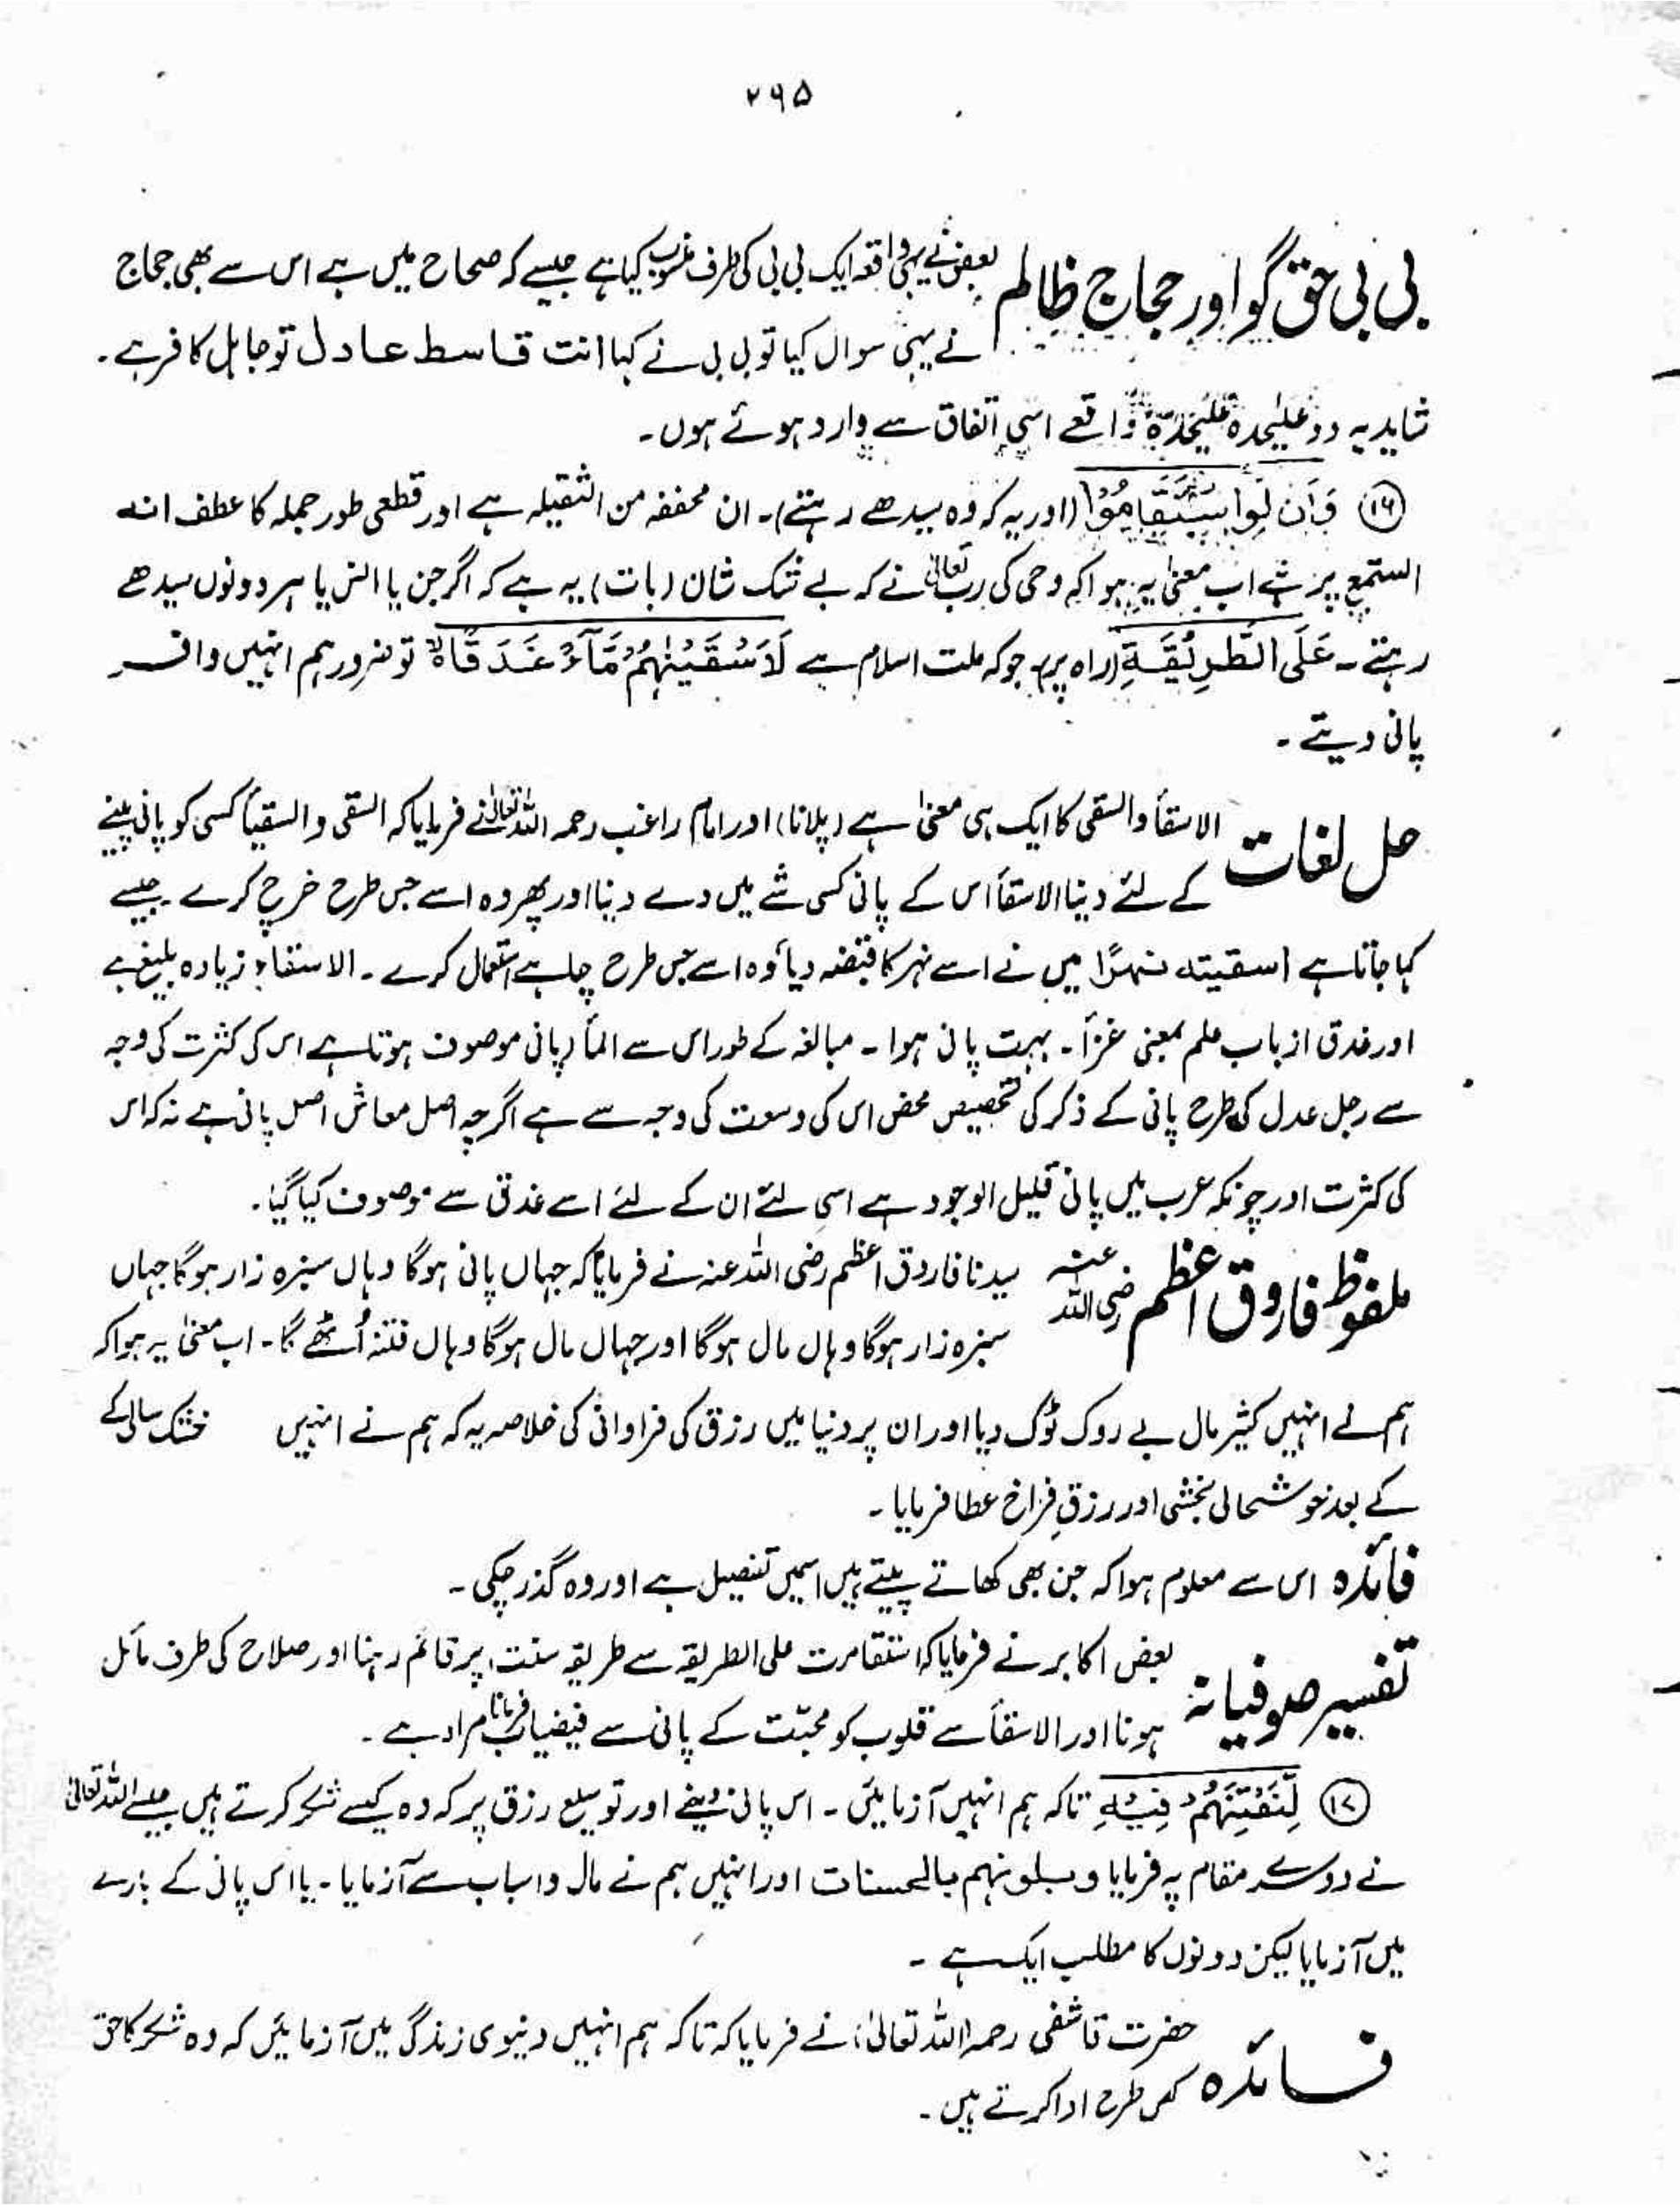 ۲۹۵
بی بی حق گو اور حجاج ظالم بعض نے یہی واقعہ ایک بی بی کی طرف منسوب کیا ہے جیسے کہ صحاح میں ہے اس سے بھی حجاج
نے یہی سوال کیا تو بی بی نے کہا انت قاسط عادل تو جاہل کافر ہے۔
شاید یہ دو علیٰحدہ علیٰحدہ واقعے اسی اتفاق سے وارد ہوئے ہوں۔
⑯ وَاَنْ لَّوِ اسْتَقَامُوْا (اور یہ کہ وہ سیدھے رہتے)۔ ان مخففہ من الثقیلہ ہے اور قطعی طور جملہ کا عطف انہ
استمع پر ہے اب معنیٰ یہ ہوا کہ وحی کی رب تعالیٰ نے کہ بے شک شان (بات) یہ ہے کہ اگر جن یا انس یا ہر دونوں سیدھے
رہتے۔ عَلَی الطَّرِیْقَةِ (راہ پر) جو کہ ملت اسلام ہے لَاَسْقَیْنٰهُمْ مَّآءً غَدَقًا ۙ تو ضرور ہم انہیں وافر
پانی دیتے۔
حل لغات الاسقأ والسقی کا ایک ہی معنیٰ ہے (پلانا) اور امام راغب رحمہ اللہ تعالیٰ نے فرمایا کہ السقی والسقیأ کسی کو پانی پینے
کے لئے دینا الاسقأ اس کے پانی کسی شے میں دے دینا اور پھر وہ اسے جس طرح خرچ کرے۔ جیسے
کہا جاتا ہے اسقیتہ نہرًا میں نے اسے نہر کا قبضہ دیا وہ اسے جس طرح چاہے استعمال کرے۔ الاسقاء زیادہ بلیغ ہے
اور غدق از باب علم بمعنی غزأ۔ بہت پانی ہوا۔ مبالغہ کے طور اس سے المأ (پانی موصوف ہوتا ہے اس کی کثرت کی وجہ
سے رجل عدل کی طرح پانی کے ذکر کی تخصیص محض اس کی وسعت کی وجہ سے ہے اگرچہ اصل معاش اصل پانی ہے نہ کہ اس
کی کثرت اور چونکہ عرب میں پانی قلیل الوجود ہے اسی لئے ان کے لئے اسے غدق سے موصوف کیا گیا۔
ملفوظ فاروق اعظم رضی اللہ عنہ سیدنا فاروق اعظم رضی اللہ عنہ نے فرمایا کہ جہاں پانی ہوگا وہاں سبزہ زار ہوگا جہاں
سبزہ زار ہوگا وہاں مال ہوگا اور جہاں مال ہوگا وہاں فتنہ اُٹھے گا۔ اب معنیٰ یہ ہوا کہ
ہم نے انہیں کثیر مال بے روک ٹوک دیا اور ان پر دنیا میں رزق کی فراوانی کی خلاصہ یہ کہ ہم نے انہیں خشک سالی کے
کے بعد خوشحالی بخشی اور رزقِ فراخ عطا فرمایا۔
فائدہ اس سے معلوم ہوا کہ جن بھی کھاتے پیتے ہیں اسمیں تفصیل ہے اور وہ گذر چکی۔
تفسیر صوفیانہ بعض اکابر نے فرمایا کہ استقامت علی الطریقہ سے طریقہ سنت پر قائم رہنا اور صلاح کی طرف مائل
ہونا اور الاسقأ سے قلوب کو محبّت کے پانی سے فیضیاب فرمانا مراد ہے۔
⑰ لِّنَفْتِنَهُمْ فِیْهِ تاکہ ہم انہیں آزمائیں۔ اس پانی دینے اور توسیع رزق پر کہ وہ کیسے شکر کرتے ہیں جیسے اللہ تعالیٰ
نے دوسرے مقام پہ فرمایا وبلونہم بالحسنات اور انہیں ہم نے مال و اسباب سے آزمایا۔ یا اس پانی کے بارے
میں آزمایا لیکن دونوں کا مطلب ایک ہے۔
فائدہ حضرت قاشفی رحمہ اللہ تعالیٰ نے فرمایا کہ تاکہ ہم انہیں دنیوی زندگی میں آزمائیں کہ وہ شکر کا حق
کس طرح ادا کرتے ہیں۔